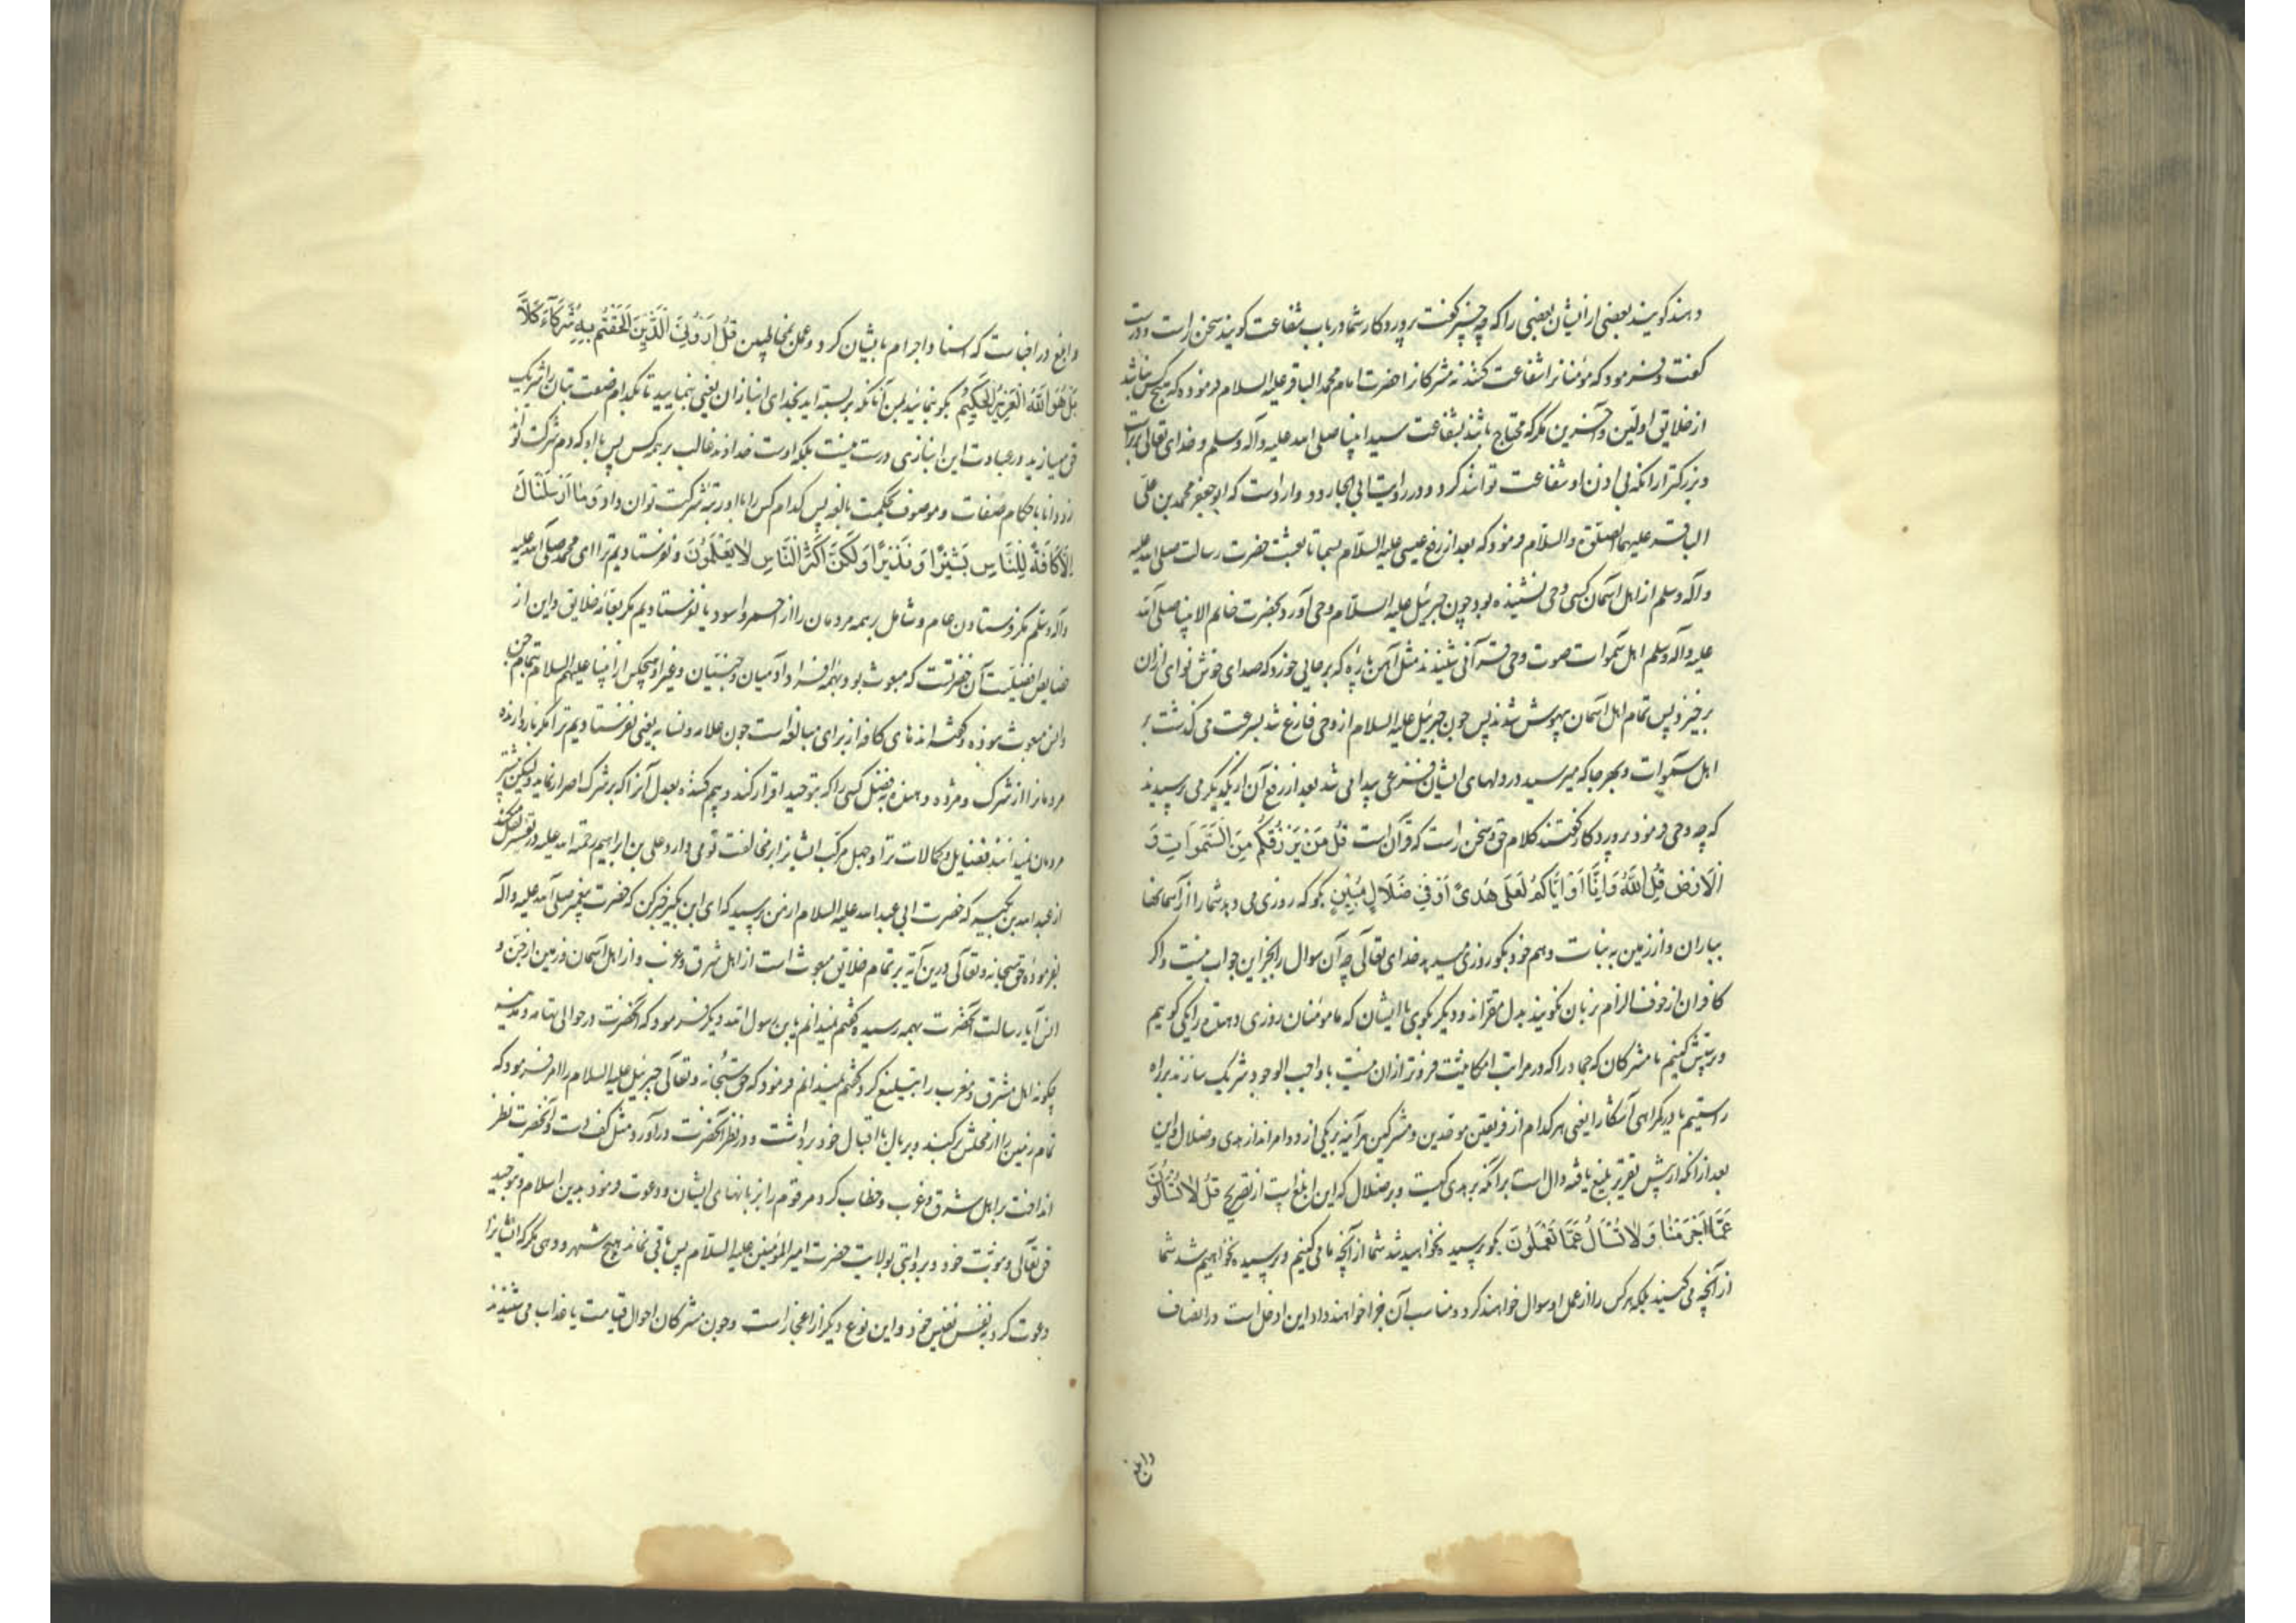 دهند کویند بعضی از ایشان بعضی را که چه چیز کفت پروردکار شما در باب شفاعت کویند سخن راست و درست
کفت و فرمود که مؤمنانرا شفاعت کنند نه مشرکانرا حضرت امام محمد الباقر علیه السلام فرموده که هیچ کس نباشد
از خلایق اولین و آخرین مکر که محتاج باشد بشفاعت سید انبیا صلی الله علیه وآله وسلم و خدای تعالی
و بزرکتر از آنکه بی اذن او شفاعت توانند کرد و در روایت ابی الجارود وارد است که ابو جعفر محمد بن علی
الباقر علیهما الصلوة والسلام فرمود که بعد از رفع عیسی علیه السلام بسما تا بعثت حضرت رسالت صلی الله علیه
وآله وسلم از اهل آسمان کسی وحی نشنیده بود چون جبرئیل علیه السلام وحی آورد بحضرت خاتم الانبیا صلی الله
علیه وآله وسلم اهل سموات صوت وحی قرآنی شنیدند مثل آهن پاره که بر جایی خورد که صدای خوش نوای ازان
برخیزد پس تمام اهل آسمان بیهوش شدند پس چون جبرئیل علیه السلام از وحی فارغ شد بسرعت می کذشت بر
اهل سموات و بهر جا که میرسید در دلهای ایشان فزعی پیدا می شد بعد از رفع آن از یکدیکر می پرسیدند
که چه وحی فرمود پروردکار کفتند کلام حق و سخن راست که قرآن است قُلْ مَنْ يَرْزُقُكُمْ مِنَ السَّمَوَاتِ وَ
الْأَرْضِ قُلِ اللَّهُ وَإِنَّا أَوْ إِيَّاكُمْ لَعَلَى هُدًى أَوْ فِي ضَلَالٍ مُبِينٍ بکو که روزی می دهد شما را از آسمانها
بباران و از زمین به نبات و هم خود بکو روزی میدهد خدای تعالی چه آن سوال را بجز این جواب نیست و اکر
کافران از خوف الزام بزبان نکویند بدل مقراند و دیکر بکوی با ایشان که ما مومنان روزی دهنده را یکی کوییم
و پرستش کنیم یا مشرکان که جماد را که در مراتب امکانیت فروتر ازان نیست با واجب الوجود شریک سازند براه
راستیم یا در کمراهی آشکارا یعنی هر کدام از فریقین موحدین و مشرکین هر آینه بر یکی از دو امراند از هدی و ضلال و این
بعد از آنکه از پیش تقریر بلیغ یافته دال است بر آنکه بر هدی کیست و بر ضلال که این ابلغ است از تصریح قُلْ لَا تُسْأَلُونَ
عَمَّا أَجْرَمْنَا وَلَا نُسْأَلُ عَمَّا تَعْمَلُونَ بکو پرسیده نخواهید شد شما از آنچه ما می کنیم و پرسیده نخواهیم شد شما
از آنچه می کنید بلکه هر کس را از عمل او سوال خواهند کرد و مناسب آن جزا خواهند داد این ادخل است در انصاف
وابلغ
وابلغ در اخبات که اسناد اجرام با ایشان کرد و عمل بمخاطبین قُلْ أَرُونِيَ الَّذِينَ أَلْحَقْتُمْ بِهِ شُرَكَاءَ كَلَّا
بَلْ هُوَ اللَّهُ الْعَزِيزُ الْحَكِيمُ بکو بنمائید بمن آنانکه بربسته اید بخدای انبازان یعنی بنمایید تا بکدام صفت بتان را شریک
حق میسازید در عبادت این انبازی درست نیست بلکه اوست خداوند غالب بر همه کس پس با او که دم شرکت
زد و دانا باحکام صفات و موصوف بحکمت بالغه پس کدام کس را با او رتبه شرکت توان داد وَمَا أَرْسَلْنَاكَ
إِلَّا كَافَّةً لِلنَّاسِ بَشِيرًا وَنَذِيرًا وَلَكِنَّ أَكْثَرَ النَّاسِ لَا يَعْلَمُونَ و نفرستادیم ترا ای محمد صلی الله علیه
وآله وسلم مکر فرستادن عام و شامل بر همه مردمان را از احمر و اسود یا نفرستادیم مکر بعامه خلایق و این از
خصایص افضلیت آن حضرتست که مبعوث بود بهمه افراد آدمیان و جنیان و غیر او هیچکس از انبیا علیهم السلام بتمام جن
وانس مبعوث نبوده و کفته اند های کافه از برای مبالغه است چون علامه و نسابه یعنی نفرستادیم ترا مکر بازدارنده
مردمانرا از شرک و مژده دهنده بفضل کسی را که بتوحید اقرار کند و بیم کننده بعدل آنرا که بر شرک اصرار نماید ولیکن بیشتر
مردمان نمیدانند فضایل و کمالات ترا و جهل مرکب ایشانرا بر مخالفت تو می دارد علی بن ابراهیم رحمة الله علیه در تفسیر
از عبدالله بن بکیر که حضرت ابی عبدالله علیه السلام از من پرسید که ای ابن بکیر خبر کن که حضرت پیغمبر صلی الله علیه وآله
بفرموده حق سبحانه وتعالی درین آیه بر تمام خلایق مبعوث است از اهل شرق و غرب و از اهل آسمان و زمین از جن و
انس آیا رسالت آنحضرت بهمه رسیده کفتم نمیدانم یا بن رسول الله دیکر فرمود که آنحضرت در حوالی تهامه و مدینه
چکونه اهل مشرق و مغرب را تبلیغ کرد کفتم نمیدانم فرمود که حق سبحانه وتعالی جبرئیل علیه السلام را امر فرمود که
تمام زمین را از محلش برکند و بر بال با اقبال خود برداشت و در نظر آنحضرت در آورد مثل کف دست و آنحضرت نظر
انداخت بر اهل شرق و غرب و خطاب کرد هر قوم را بزبانهای ایشان و دعوت فرمود بدین اسلام و توحید
حق تعالی و نبوت خود و بروایتی بولایت حضرت امیر المؤمنین علیه السلام پس باقی نماند هیچ شهر و دهی مکر که ایشانرا
دعوت کرد بنفس نفیس خود و این نوع دیکر از اعجاز است و چون مشرکان احوال قیامت یا عذاب می شنیدند